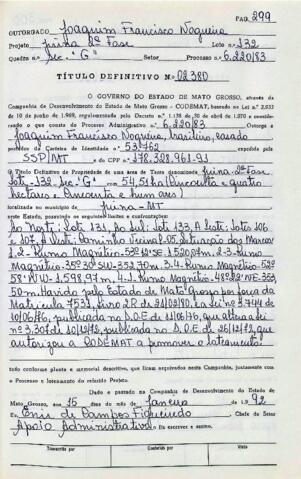 PAG. 299
OUTORGADO Joaquim Francisco Nogueira
Projeto Juina 2ª Fase Lote n.º 132
Quadra n.º Sec. "G" Setor Processo n.º 6.220/83
TÍTULO DEFINITIVO N.º 02380
O GOVERNO DO ESTADO DE MATO GROSSO, através da
Companhia de Desenvolvimento do Estado de Mato Grosso - CODEMAT, baseado na Lei n.º 2.933
de 10 de junho de 1.969, regulamentada pelo Decreto n.º 1.138 de 30 de abril de 1.970 e considerando
o que consta do Processo Administrativo n.º 6.220/83 Outorga a
Joaquim Francisco Nogueira, brasileiro, casado
portador da Carteira de Identidade n.º 53.762 expedida pela
SSP/MT e do CPF n.º 178.328.961-91
O Título Definitivo de Propriedade de uma área de Terra denominada Juina-2ª Fase
Lote-132-Sec. "G" com 54,51ha (Cincoenta e quatro
hectares e cincoenta e hum ares)
localizada no município de Juina-MT
neste Estado, possuindo os seguintes limites e confrontações:
Ao Norte: Lote 131, Ao Sul: Lote 133, A Leste: Lotes 106
e 107, A Oeste: Caminho Vicinal-05. Situação dos Marcos
1.2-Rumo Magnético-53º12'SE-1.520,87m. 2-3-Rumo
Magnético-35º30'SW-352,70m. 3-4-Rumo Magnético-52º
58'NW-1.598,97m. 4-1-Rumo Magnético-48º22'NE-353,
50m. Havido pelo Estado de Mato Grosso por força da
Matrícula 7531, livro 2R de 24/02/80. La Lei nº 3.744 de
10/06/76, publicada no D.O.E de 10/06/76, que altera a Lei
nº 3.307 de 10/12/72, publicada no D.O.E de 26/12/72, que
autorizou a CODEMAT a promover o loteamento.
tudo conforme planta e memorial descritivo, que ficam arquivados nesta Companhia, juntamente com
o Processo e loteamento do referido Projeto.
Dado e passado na Companhia de Desenvolvimento do Estado de
Mato Grosso, aos 15 dias do mês de Janeiro de 1.992
Eu Enir de Campos Figueiredo Chefe do Setor
Apoio Administrativo o fiz escrever e assino.
Transcrito por Conferido por Visto